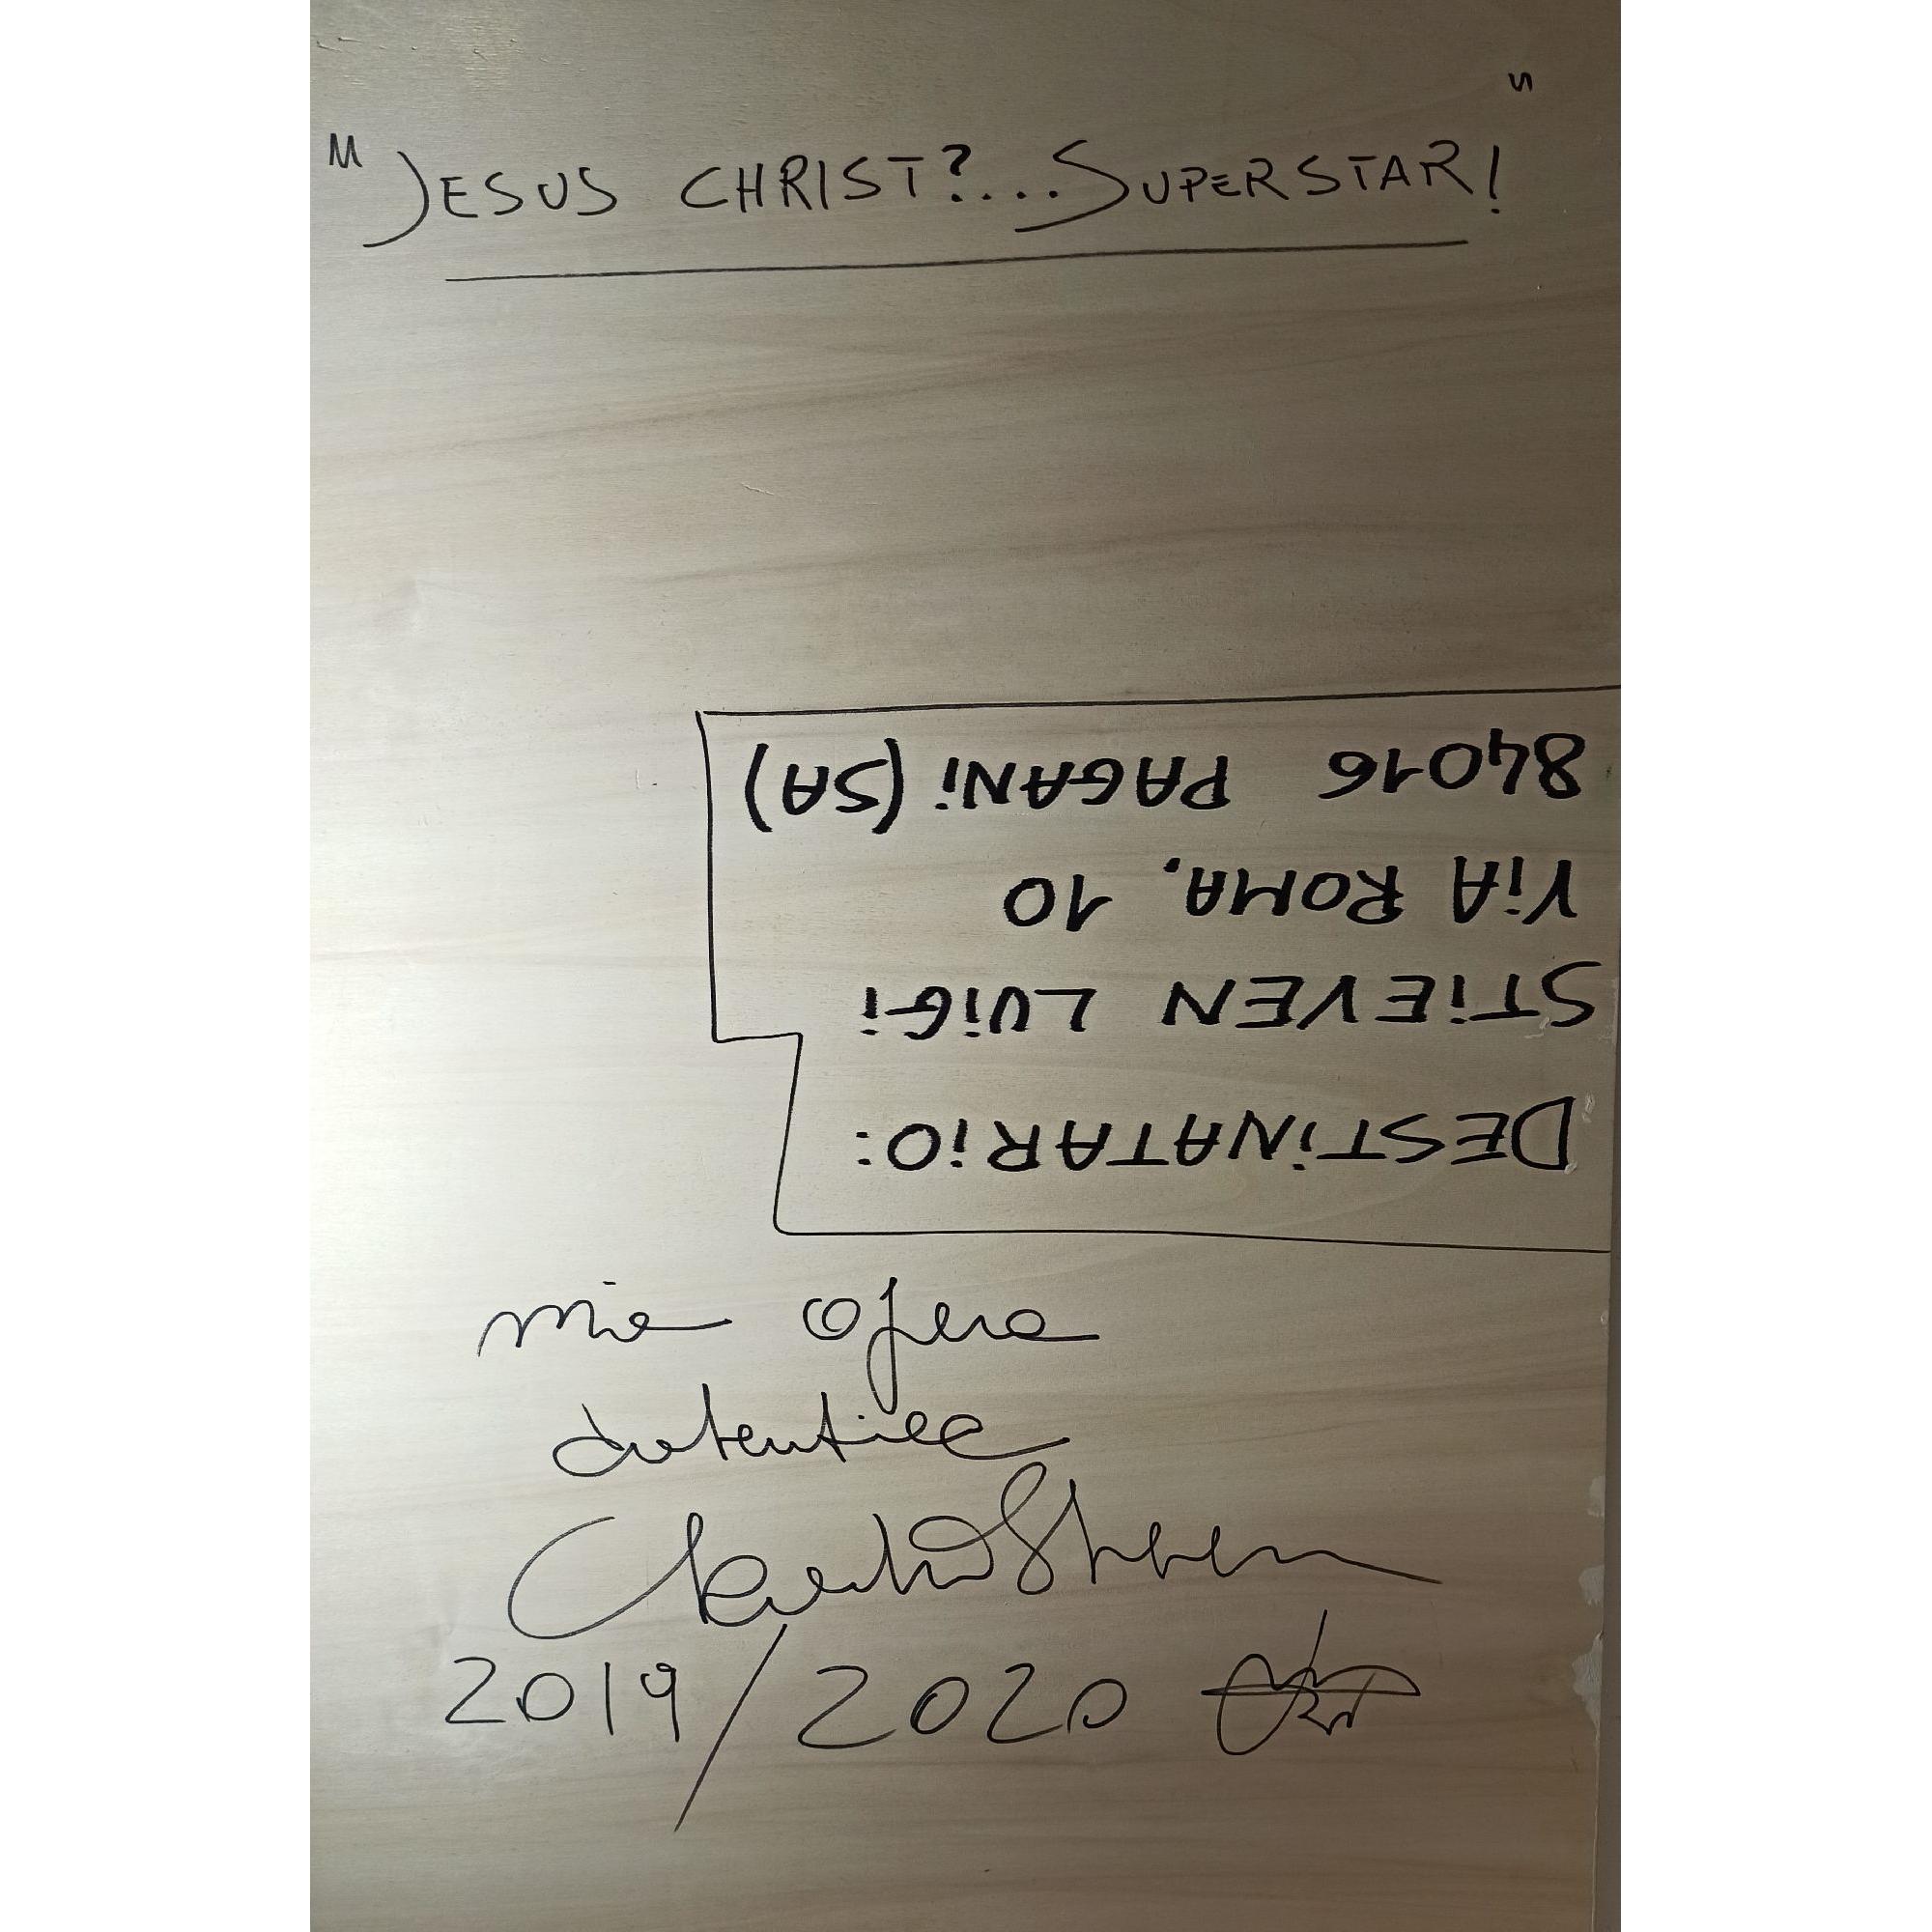 "JESUS CHRIST?...SUPERSTAR!"
DESTINATARIO:
STIEVEN LUIGI
VIA ROMA, 10
84016 PAGANI (SA)
mia opera
autentica
Claudio Stieven
2019/2020